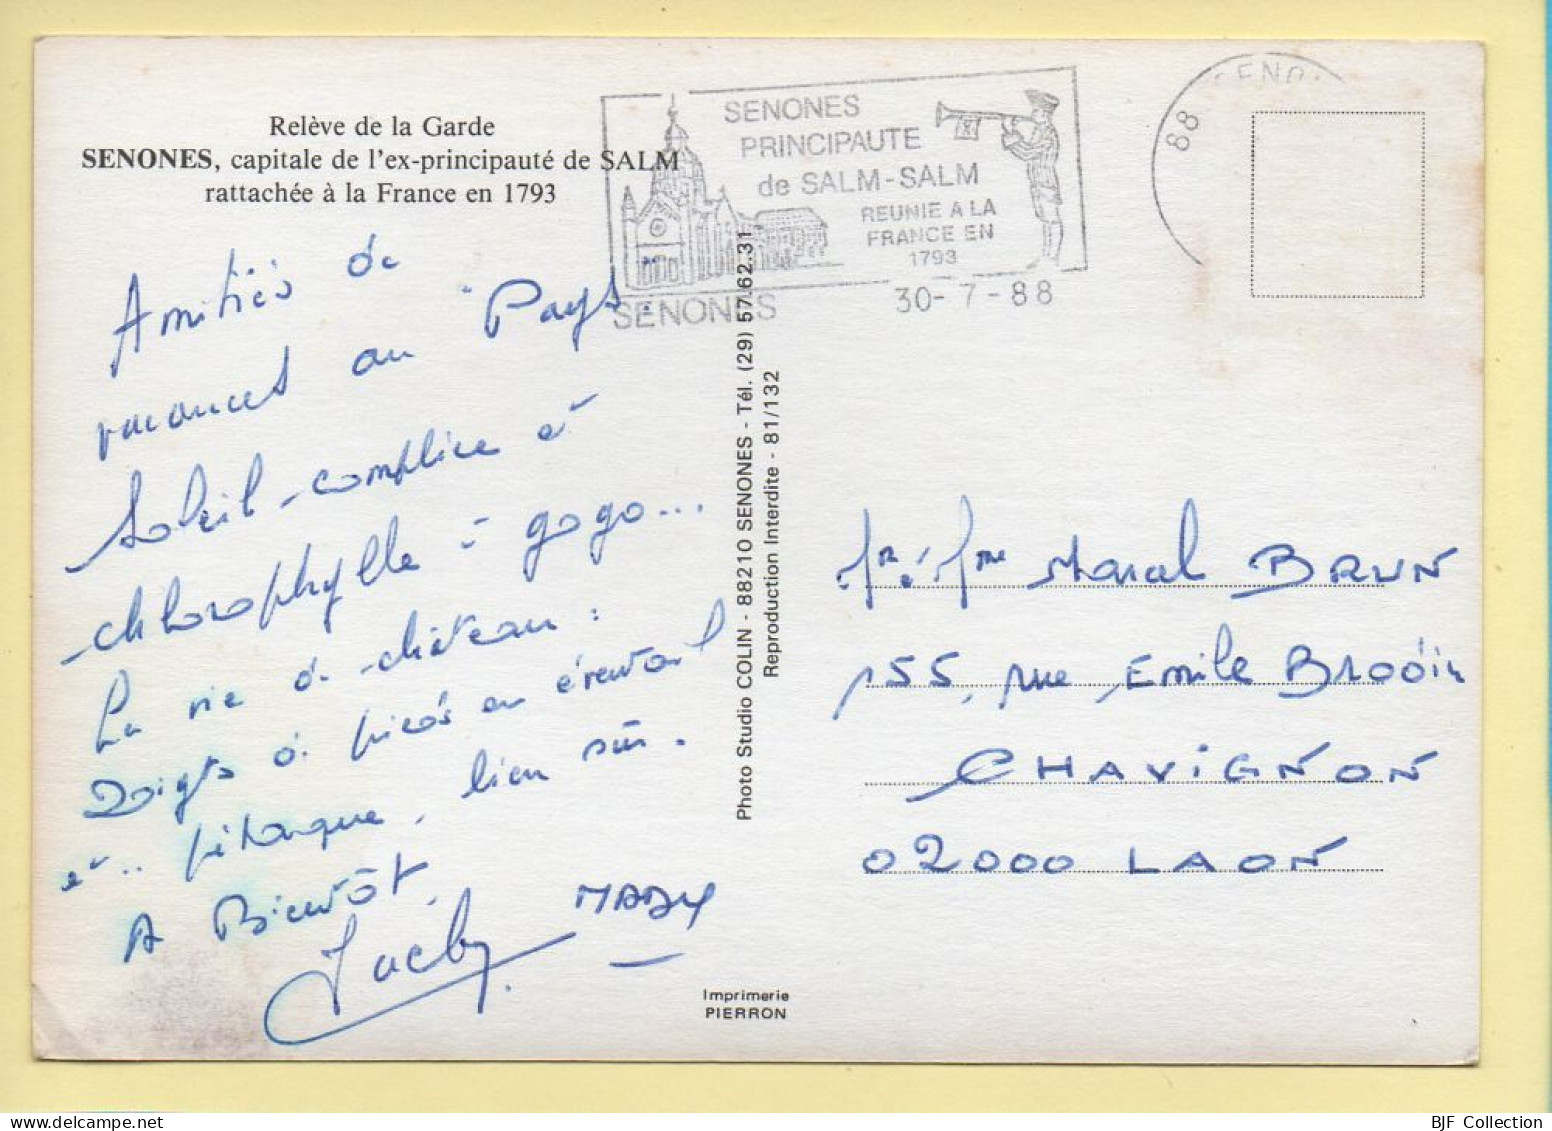 Relève de la Garde
SENONES, capitale de l'ex-principauté de SALM
rattachée à la France en 1793
SENONES
PRINCIPAUTE
de SALM-SALM
REUNIE A LA
FRANCE EN
1793
SENONES
30-7-88
88 SENON
Amitiés de
vacances au "Pays.
Soleil-complice et
chlorophylle à gogo...
La vie de château :
Doigts de pieds en éventail
et .. pétanque, bien sûr.
A Bientôt,
Jacky MADY
Photo Studio COLIN - 88210 SENONES - Tél. (29) 57.62.31
Reproduction Interdite - 81/132
Mr & Mme Marcel BRUN
155, rue Emile Brodin
CHAVIGNON
02000 LAON
Imprimerie
PIERRON
BJF Collection